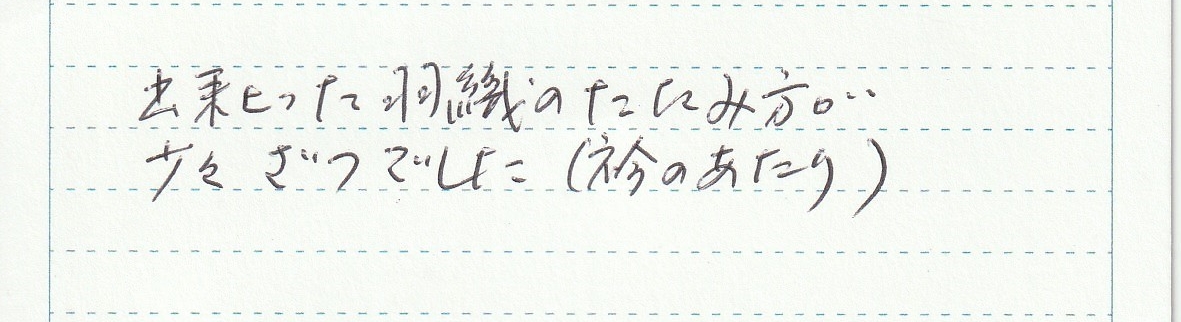 出来上った羽織のたたみ方が…
少々ざつでした(衿のあたり)